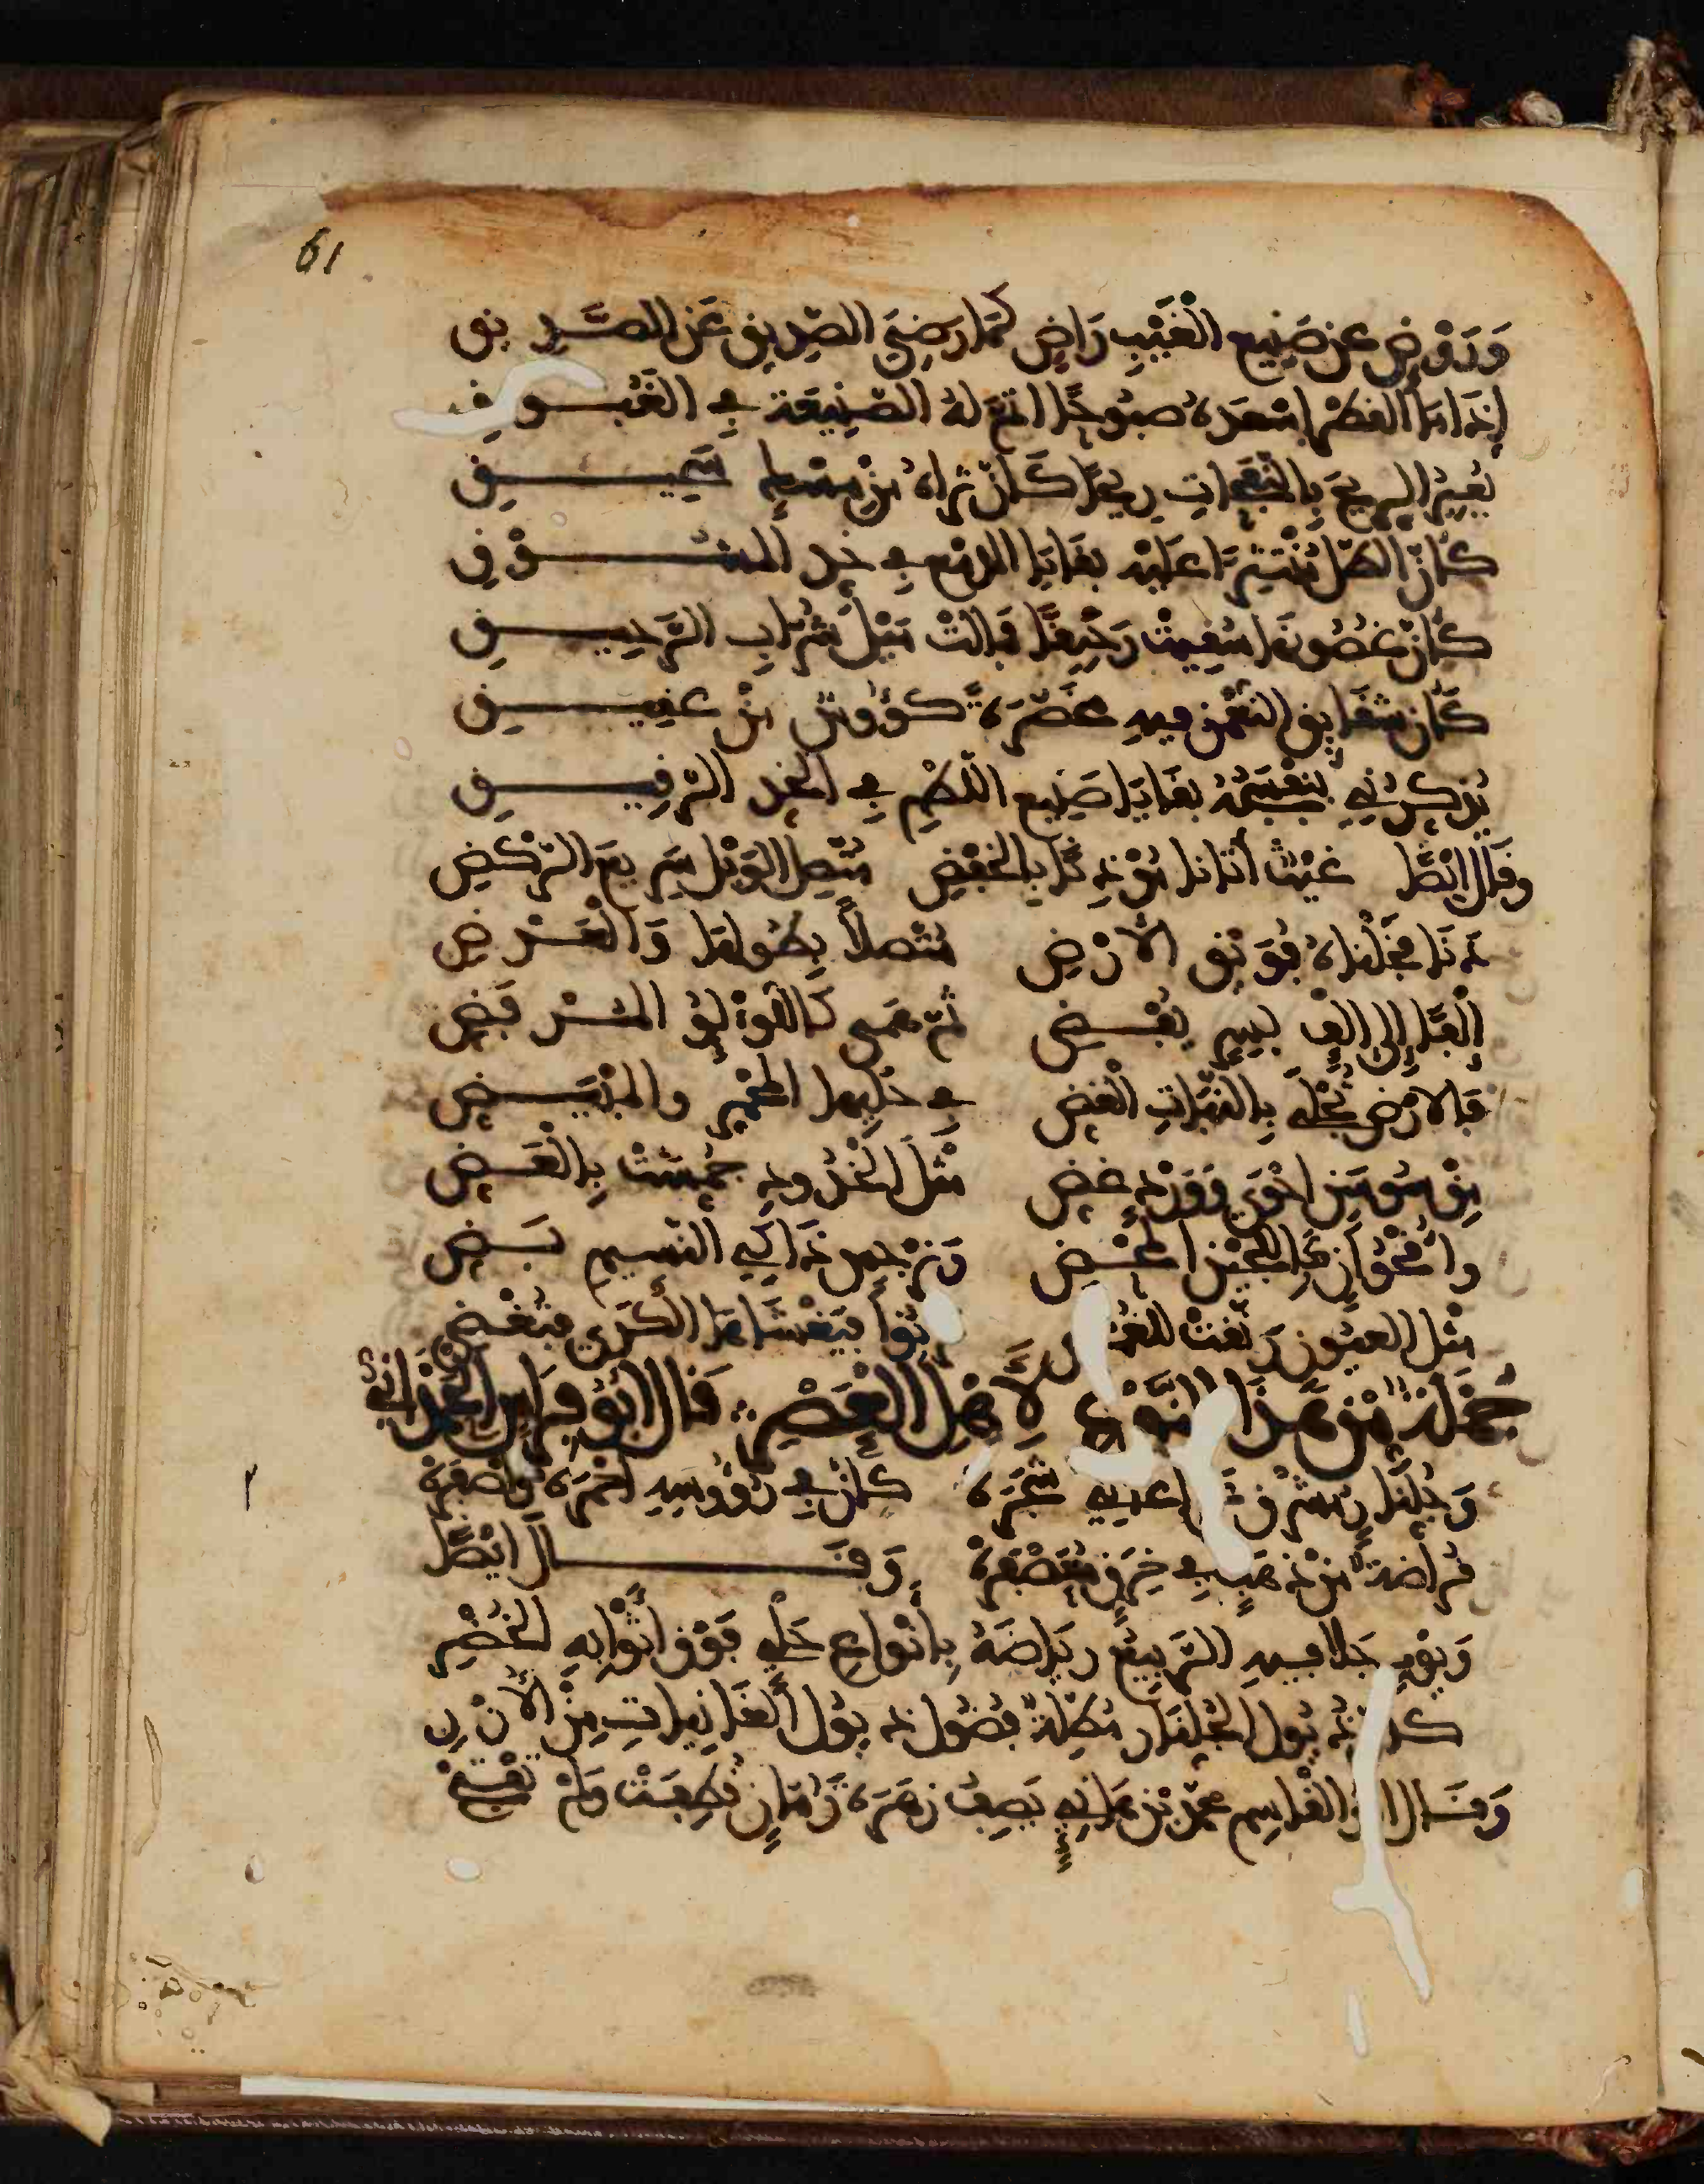 61
وَرَوْضٍ عَن صَنِيعِ الْغَيْثِ رَاضٍ كَمَا رَضِيَ الصَّدِيقُ عَنِ الصَّدِيقِ
إِذَا مَا الْقَطْرُ أَسْعَدَهُ صَبُوحًا أَتَمَّ لَهُ الصَّنِيعَةَ فِي الْغَبُوقِ
يُعِيرُ الرِّيحَ بِالنَّفَحَاتِ رِيحًا كَأَنَّ ثَرَاهُ مِنْ مِسْكٍ سَحِيقِ
كَأَنَّ الطَّلَّ مُنْتَثِرًا عَلَيْهِ بَقَايَا الدَّمْعِ فِي خَدِّ الْمَشُوقِ
كَأَنَّ غُصُونَهَا سُقِيَتْ رَحِيقًا فَمَالَتْ مَيْلَ شُرَّابِ الرَّحِيقِ
كَأَنَّ شَقَائِقَ النُّعْمَنِ فِيهِ مُحَضَّرَةً كُؤُوسٌ مِنْ عَقِيقِ
يُذَكِّرُنِي بَنَفْسَجُهُ بَقَايَا صَنِيعِ اللَّطْمِ فِي الْخَدِّ الرَّقِيقِ
وَقَالَ أَيْضًا غَيْثٌ أَتَانَا مُؤْذِنًا بِالْخَفْضِ مُتَّصِلُ الْوَبْلِ سَرِيعُ الرَّكْضِ
دَنَا فَخِلْنَاهُ فُوَيْقَ الْأَرْضِ مُتَّصِلًا بِطُولِهَا وَالْعَرْضِ
إِلْفًا إِلَى إِلْفٍ بِسِرٍّ يُفْضِي ثُمَّ هَمَى كَاللُّؤْلُؤِ الْمُرْفَضِّ
فَالْأَرْضُ تُجْلَى بِالنَّبَاتِ الْغَضِّ فِي حَلْيِهَا الْمُحْمَرِّ وَالْمُبْيَضِّ
مِنْ سَوْسَنٍ أَحْوَى وَوَرْدٍ غَضِّ مِثْلَ الْخُدُودِ خُمِشَتْ بِالْعَضِّ
وَأُقْحُوَانٍ كَاللُّجَيْنِ الْمَحْضِ وَنَرْجِسٍ ذَاكِي النَّسِيمِ بَضِّ
مِثْلَ الْعُيُونِ رَنَّقَتْ لِلْغُمْضِ تَرْنُو فَيَغْشَاهَا الْكَرَى فَتُغْضِي
جُمْلَةٌ مِنْ هَذَا النَّوْعِ لِأَهْلِ الْعَصْرِ قَالَ أَبُو فِرَاسٍ الْحَمْدَانِيُّ
وَجُلَّنَارٍ مُشْرِقٍ عَلَى أَعَالِي شَجَرَهْ كَأَنَّ فِي رُؤُوسِهِ أَحْمَرَهُ وَأَصْفَرَهْ
قُرَاضَةً مِنْ ذَهَبٍ فِي خِرَقٍ مُعَصْفَرَهْ وَقَالَ أَيْضًا
وَيَوْمٍ جَلَا فِيهِ الرَّبِيعُ رِيَاضَهُ بِأَنْوَاعِ حَلْيٍ فَوْقَ أَثْوَابِهِ الْخُضْرِ
كَأَنَّ ذُيُولَ الْجُلَّنَارِ مُطِلَّةً فُضُولُ ذُيُولِ الْغَانِيَاتِ مِنَ الْأُزْرِ
وَقَالَ أَبُو الْقَاسِمِ مُحَمَّدُ بْنُ هَانِيٍ يَصِفُ زَهْرَةَ رُمَّانٍ قُطِعَتْ وَلَمْ تُفْتَحْ